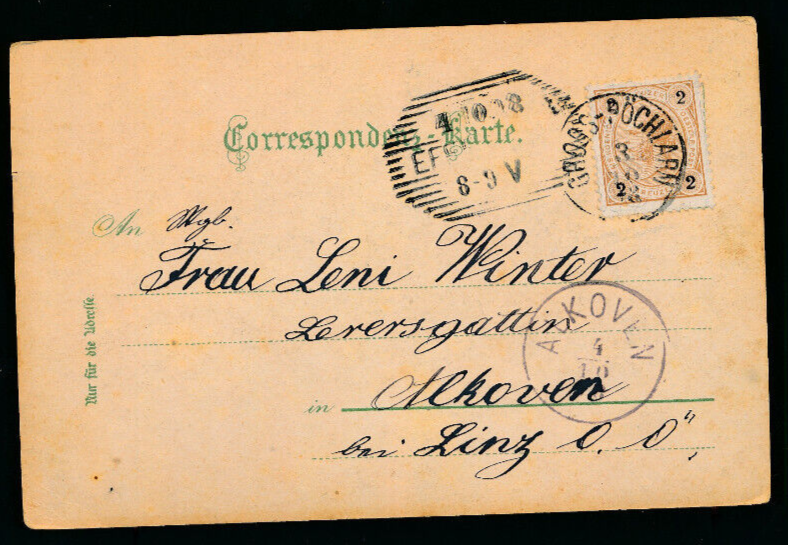 Correspondenz-Karte.
4 10 98
EF
8-9 V
GROSS-PÖCHLARN
3
10
98
2
2
2
An Wgb.
Frau Leni Winter
Lerersgattin
in Alkoven
bei Linz O. Ö.
ALKOVEN
4
10
Nur für die Adresse.